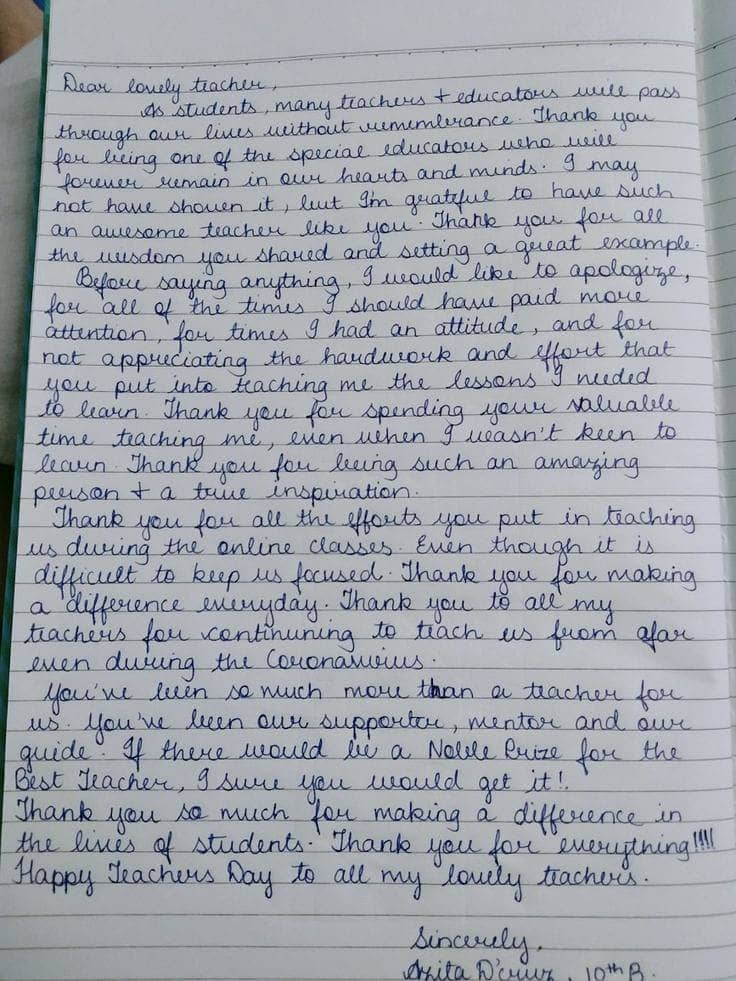 Dear lovely teacher,
As students, many teachers + educators will pass
through our lives without rememberance. Thank you
for being one of the special educators who will
forever remain in our hearts and minds. I may
not have shown it, but I'm grateful to have such
an awesome teacher like you. Thank you for all
the wisdom you shared and setting a great example.
Before saying anything, I would like to apologize,
for all of the times I should have paid more
attention, for times I had an attitude, and for
not appreciating the hardwork and effort that
you put into teaching me the lessons I needed
to learn. Thank you for spending your valuable
time teaching me, even when I wasn't keen to
learn. Thank you for being such an amazing
person + a true inspiration.
Thank you for all the efforts you put in teaching
us during the online classes. Even though it is
difficult to keep us focused. Thank you for making
a difference everyday. Thank you to all my
teachers for continuning to teach us from afar
even during the Coronavirus.
You've been so much more than a teacher for
us. You've been our supporter, mentor and our
guide. If there would be a Noble Prize for the
Best Teacher, I sure you would get it!.
Thank you so much for making a difference in
the lives of students. Thank you for everything!!!!
Happy Teachers Day to all my lovely teachers.
Sincerely,
D'cruz, 10th B.